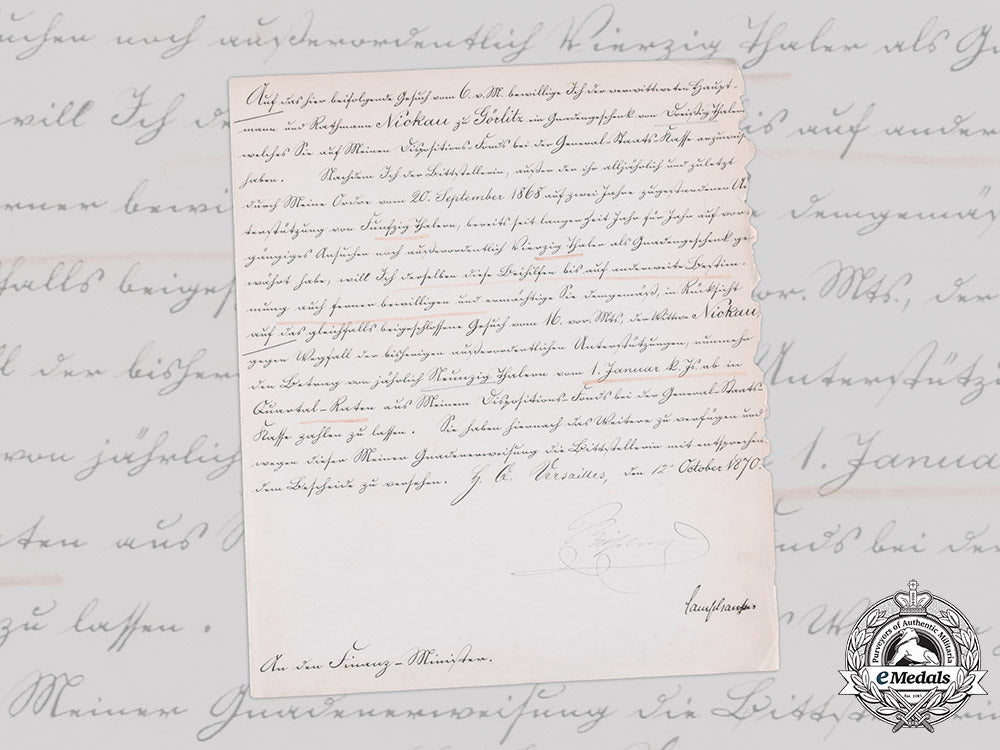 Auf das hier beifolgende Gesuch vom 6. v. M. bewillige Ich der verwittweten Haupt-
mann und Rathmann Nickau zu Görlitz ein Gnadengeschenk von Dreißig Thalern
welches Sie auf Meinen Dispositions-Fonds bei der General-Staats-Kasse anzuweisen
haben. Nachdem Ich der Bittstellerin, außer der ihr alljährlich und zuletzt
durch Meine Ordre vom 20. September 1868 auf zwei Jahre zugestandenen Un
terstützung von Funfzig Thalern, bereits seit langer Zeit Jahr für Jahr auf vor-
gängiges Ansuchen noch außerordentlich Vierzig Thaler als Gnadengeschenk ge-
währt habe, will Ich derselben diese Beihilfen bis auf anderweite Bestim-
mung auch ferner bewilligen und ermächtige Sie demgemäß, in Rücksicht
auf das gleichfalls beigeschlossene Gesuch vom 16. vor. Mts., der Wittwe Nickau,
gegen Wegfall der bisherigen außerordentlichen Unterstützungen, nunmehr
den Betrag von jährlich Neunzig Thalern vom 1. Januar k. Js. ab in
Quartal-Raten aus Meinem Dispositions-Fonds bei der General-Staats-
Kasse zahlen zu lassen. Sie haben hiernach das Weitere zu verfügen und
wegen dieser Meiner Gnadenerweisung die Bittstellerin mit entsprechen
dem Bescheide zu versehen. H. Q. Versailles, den 12 October 1870.
Wilhelm
Camphausen
An den Finanz-Minister.
Purveyors of Authentic Militaria
eMedals